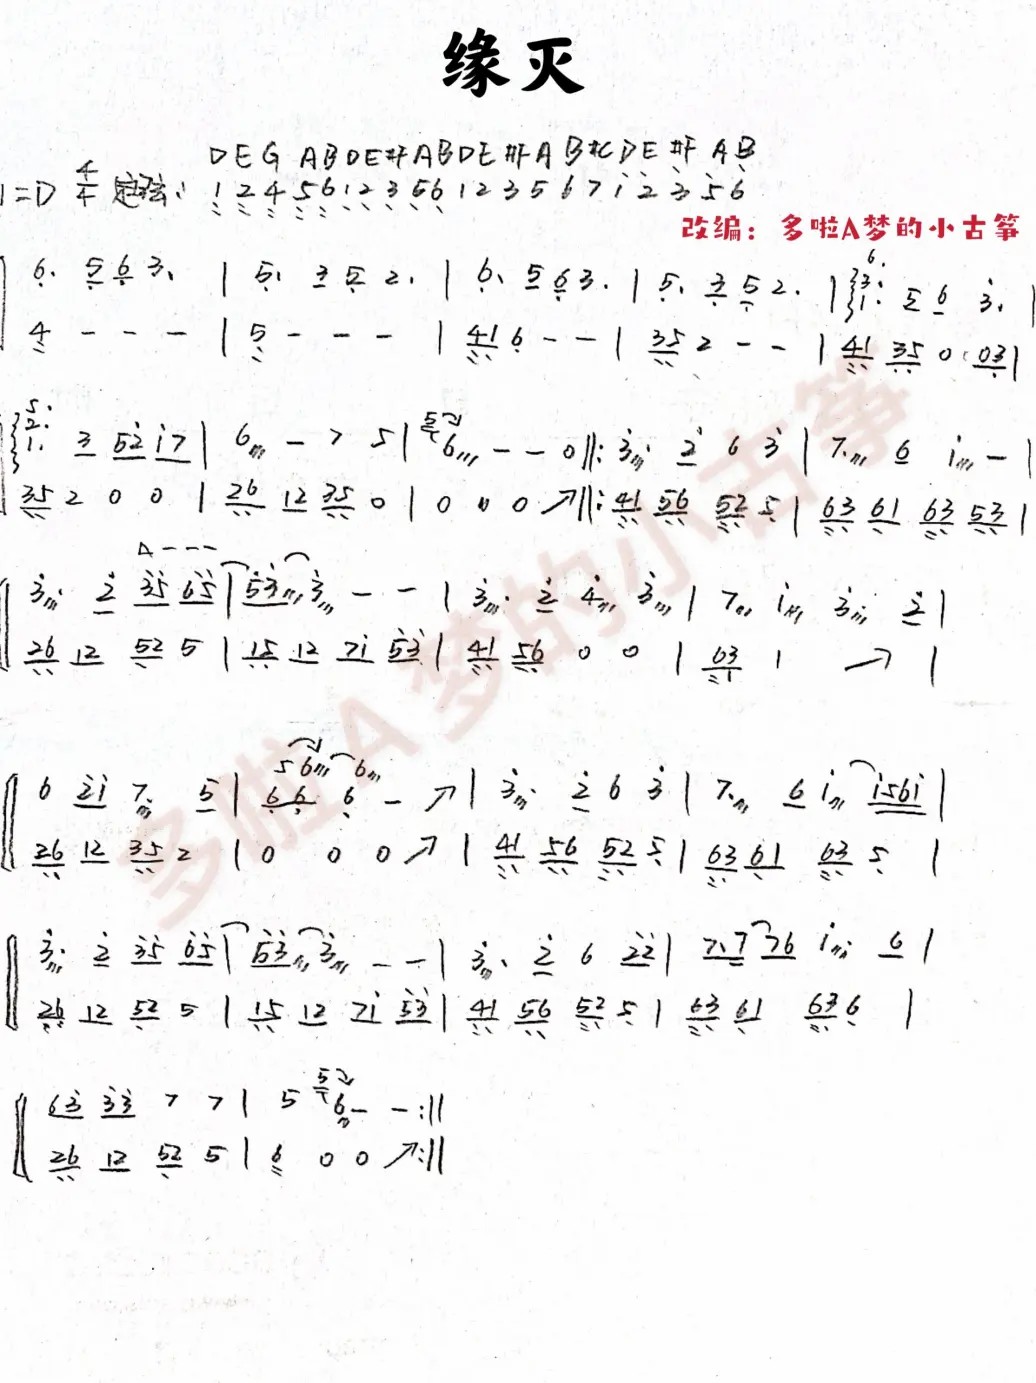 缘灭
D E G A B D E #F A B D E #F A B #C D E #F A B
1=D 4/4 定弦: 1 2 4 5 6 1 2 3 5 6 1 2 3 5 6 7 1 2 3 5 6
改编：多啦A梦的小古筝
6. 5 6 3. | 5. 3 5 2. | 6. 5 6 3. | 5. 3 5 2. | 6. 3. 1. 5 6 3. |
4 - - - | 5 - - - | 41 6 - - | 35 2 - - | 41 35 0 03 |
5. 2. 1. 3 52 17 | 6 - 7 5 | 5 6 - - 0 ||: 3. 2 6 3 | 7. 6 1 - |
35 2 0 0 | 26 12 35 0 | 0 0 0 ↗ ||: 41 56 52 5 | 63 61 63 53 |
A - - -
3. 2 35 65 | 53 3 - - | 3. 2 4 3 | 7 1 3 2 |
26 12 52 5 | 15 12 71 53 | 41 56 0 0 | 63 1 ↗ |
5 6 6
6 21 7 5 | 6 6 6 - ↗ | 3. 2 6 3 | 7. 6 1 1561 |
26 12 35 2 | 0 0 0 ↗ | 41 56 52 5 | 63 61 63 5 |
3. 2 35 65 | 53 3 - - | 3. 2 6 22 | 7.7 76 1 6 |
26 12 52 5 | 15 12 71 53 | 41 56 52 5 | 63 61 63 6 |
63 33 7 7 | 5 5 6 - - :||
26 12 52 5 | 6 0 0 ↗ :||
多啦A梦的小古筝